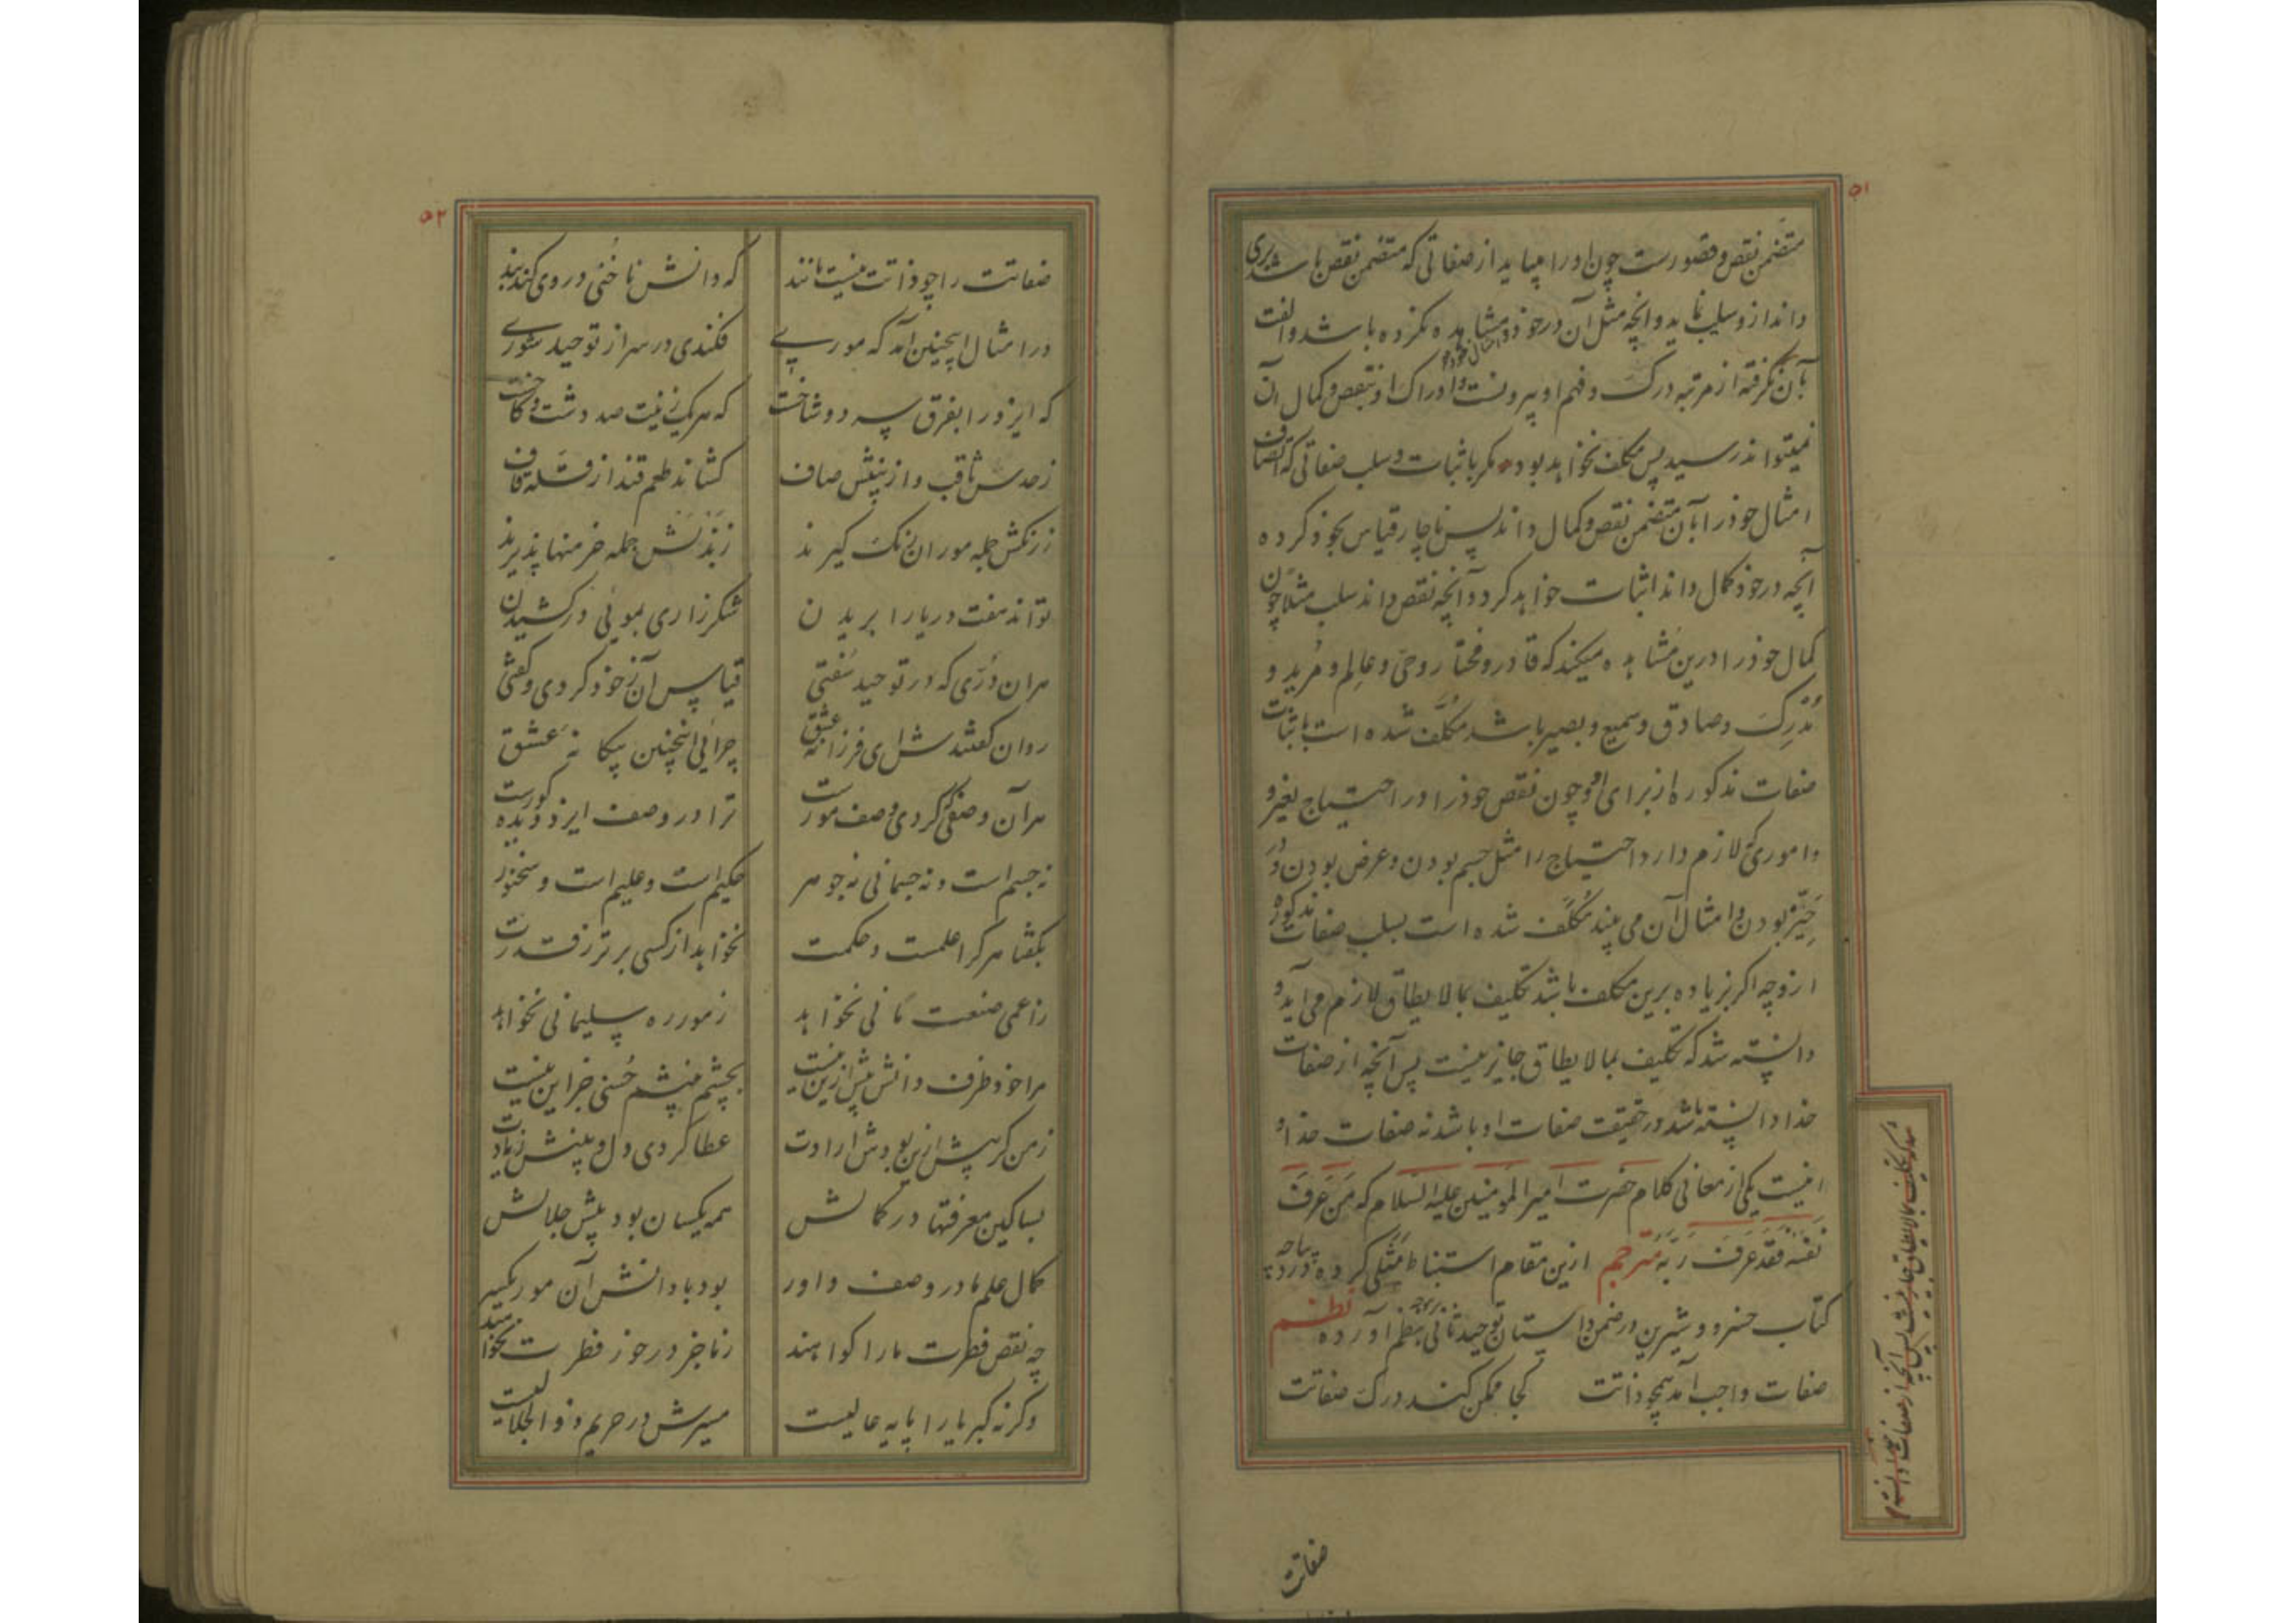 ۵۱
متضمن نقص و قصورست چون او را میباید از صفاتی که متضمن نقص باشد بری
داند ازو سلب نماید و آنچه مثل آن در خود و مشاهده نکرده باشد و الفت
بآن نگرفته از مرتبه درک و فهم او بیرونست و ادراک او بنقص و کمال آن
نمیتواند رسید پس مکلف نخواهد بود مگر باثبات و سلب صفاتی که اتصاف
امثال خود را بآن متضمن نقص و کمال داند پس ناچار قیاس بخود کرده
آنچه در خود کمال داند اثبات خواهد کرد و آنچه نقص داند سلب مثلا چون
کمال خود را درین مشاهده میکند که قادر و مختار و حی و عالم و مرید و
مدرک و صادق و سمیع و بصیر باشد مکلف شده است باثبات
صفات مذکوره از برای او و چون نقص خود را در احتیاج بغیر و
و اموری که لازم دارد احتیاج را مثل جسم بودن و عرض بودن و در
حیز بودن و امثال آن می بیند مکلف شده است بسلب صفات مذکوره
ازو چه اگر بزیاده برین مکلف باشد تکلیف بمالایطاق لازم می آید و
دانسته شد که تکلیف بمالایطاق جایز نیست پس آنچه از صفات
خدا دانسته باشد در حقیقت صفات او باشد نه صفات خدا و
اینست یکی از معانی کلام حضرت امیرالمومنین علیه السلام که من عرف
نفسه فقد عرف ربه مترجم ازین مقام استنباط مثلی کرده و در دیباچه
کتاب خسرو و شیرین در ضمن داستان توحید ثانی بنظم آورده نظم
صفات واجب آمد همچو ذاتت کجا ممکن کند درک صفاتت
تکلیف بمالایطاق جایز نیست پس آنچه از صفات خدا دانسته
صفاتت
۵۲
صفاتت را چو ذاتت نیست مانند که دانش ناخنی در وی کند بند
در امثال اینچنین آمد که موری فکندی در سر از توحید شوری
که ایزد را بفرق سر دو شاخست که هر یک زینت صد دشت و کاخست
ز حدس ثاقب و از بینش صاف کشاند طعم قند از قله قاف
ز رنگش جمله موران رنگ گیرند زبذلش جمله خرمنها پذیرند
تواند هفت دریا را بریدن شکرزاری بموئی درکشیدن
هر آن دری که در توحید سفتی قیاس آن ز خود کردی و گفتی
روان گفتند شای فرزانه عشق چرائی اینچنین بیگانه عشق
هر آن وصفی که کردی وصف مورست ترا در وصف ایزد دیده کورست
نه جسم است و نه جسمانی نه جوهر حکیم است و علیم است و سخنور
بگفتا هر کرا علمست و حکمت نخواهد از کسی برتر ز قدرت
ز اعمی صنعت مانی نخواهد ز مور ره سلیمانی نخواهد
مرا خود ظرف دانش بیش ازین نیست بچشم بینشم حسنی جز این نیست
ز من گر بیش ازین بودش ارادت عطا کردی دل و بینش زیادت
بسا کین معرفتها در کمالش همه یکسان بود پیش جلالش
کمال علم ما در وصف داور بود با دانش آن مور یکسر
چه نقص فطرت ما را گواهند ز ما جز در خور فطرت نخواهند
وگرنه کبریا را پایه عالیست مسیرش در حریم ذوالجلالیست